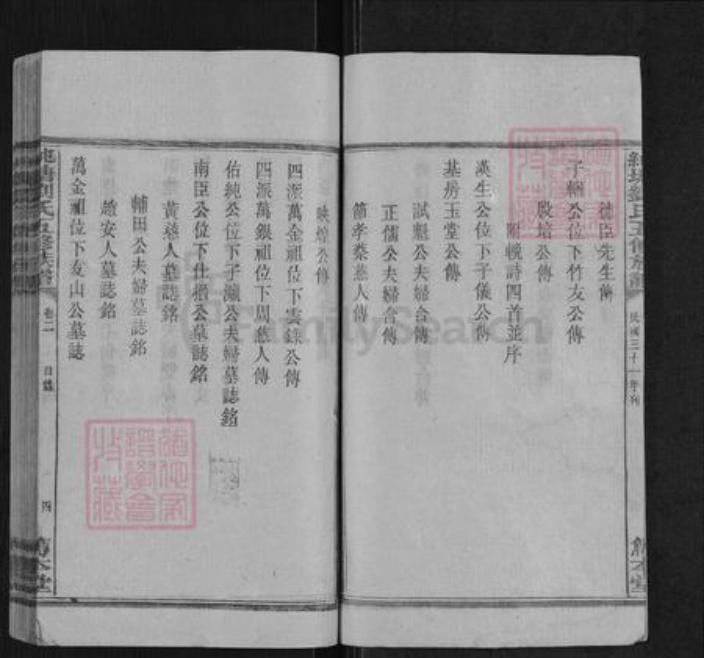 劉氏五修族譜
民國三十一年刋
德臣先生傳
子輈公位下竹友公傳
殿培公傳
附輓詩四首並序
漢生公位下子儀公傳
基房玉堂公傳
試魁公夫婦合傳
正儒公夫婦合傳
節孝蔡慈人傳
映煌公傳
四派萬金祖位下雲錄公傳
四派萬銀祖位下周慈人傳
佑純公位下子瀛公夫婦墓誌銘
南臣公位下仕搢公墓誌銘
黃慈人墓誌銘
輔田公夫婦墓誌銘
趙安人墓誌銘
萬金祖位下友山公墓誌
劉氏五修族譜
卷二
目錄
四
敦本堂
FamilySearch